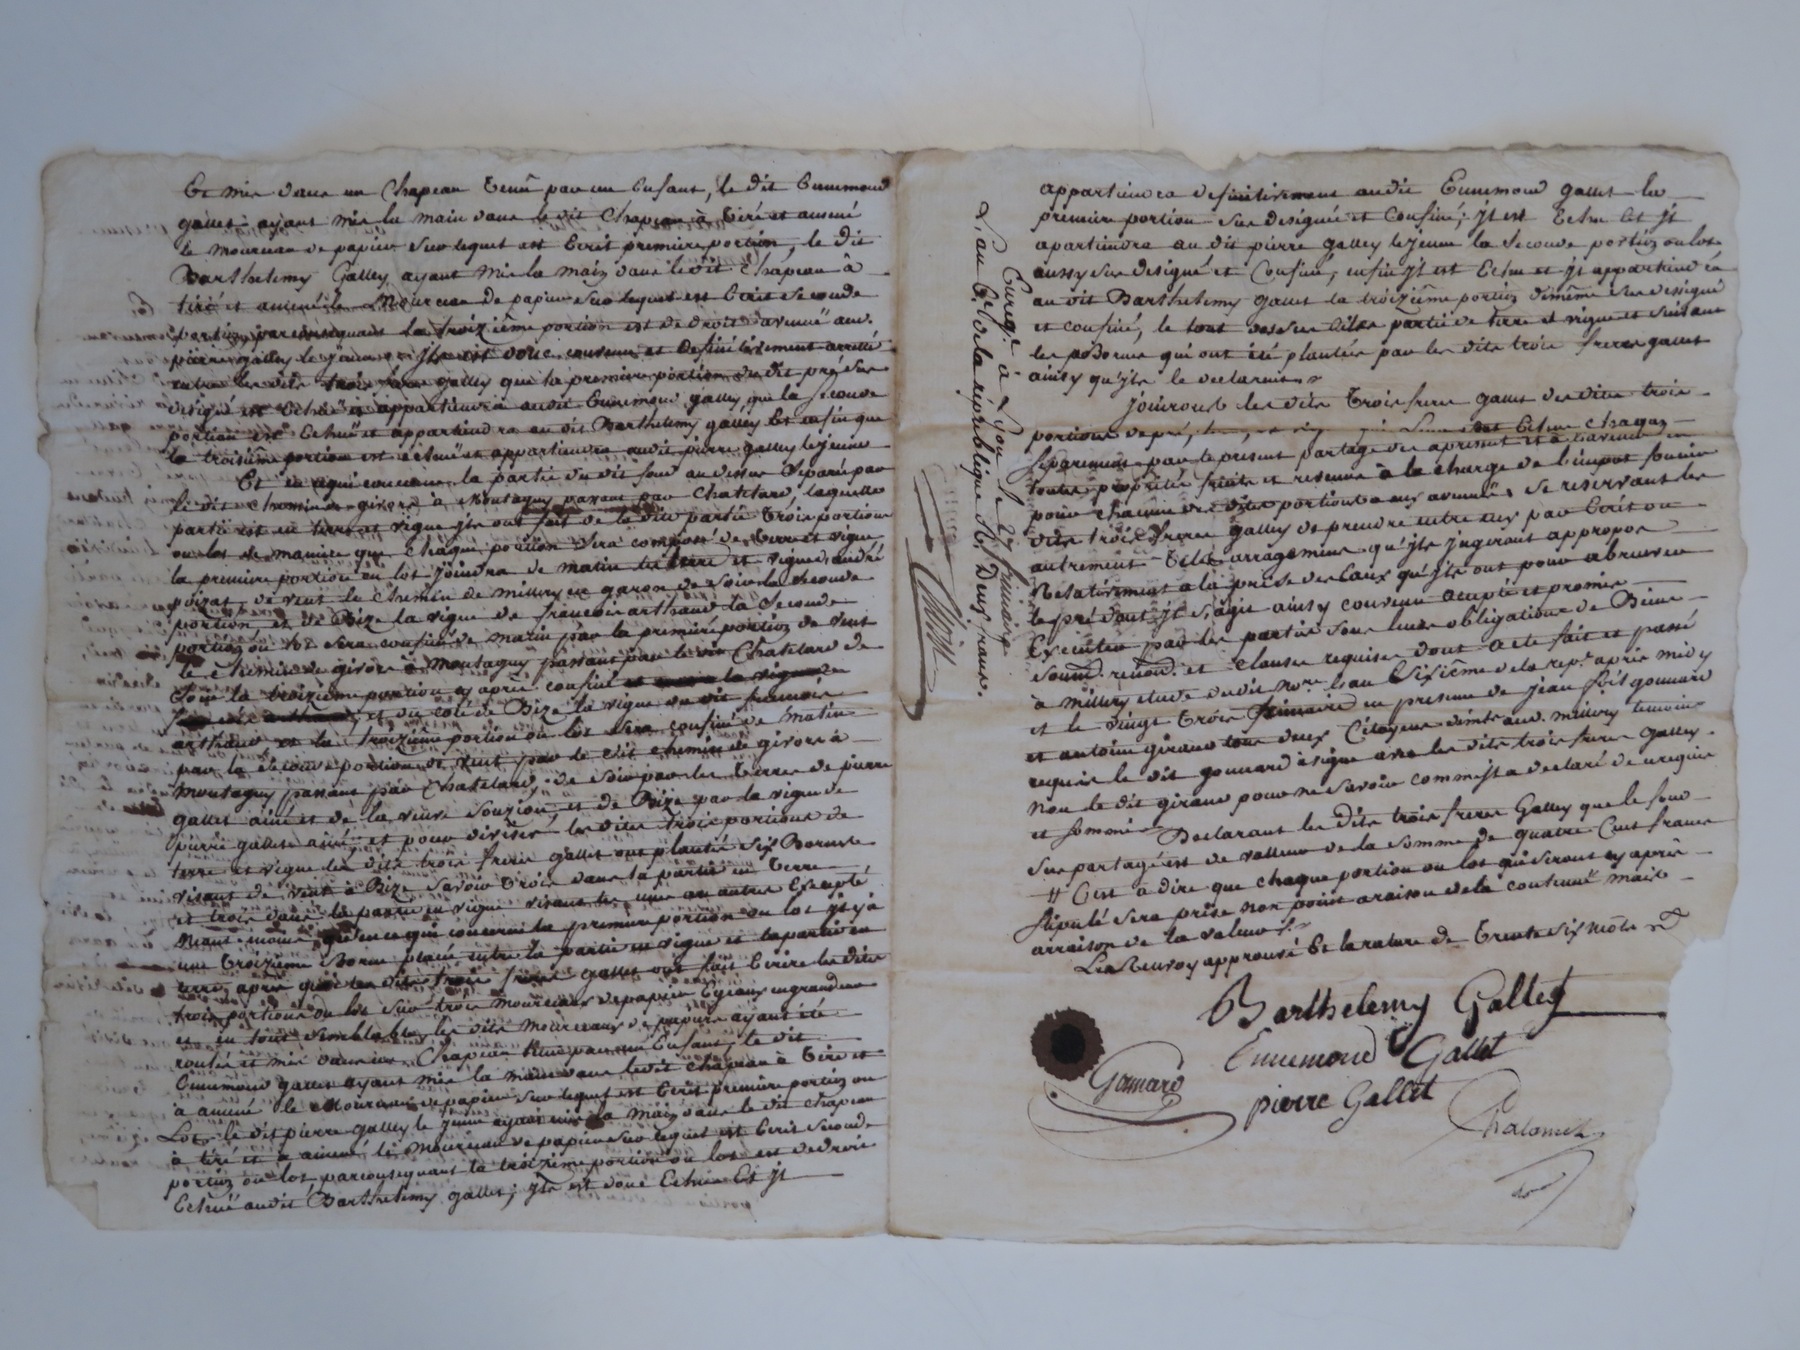 Et mis dans un Chapeau tenû par un Enfant, le dit Ennemond
gallet ayant mis la main dans le dit Chapeau à tiré et amené
le mourceau de papier sur lequel est Ecrit premiere portion, le dit
Barthelemy Galley ayant mis la main dans le dit Chapeau à
tiré et amené le Mourceau de papier sur lequel est Ecrit seconde
portion, par consequant la troizième portion est de droit avenuë aud.
pierre galley le jeune ; jls est donc convenu et definitivement arretté
entre les dits trois freres galley que la premiere portion du dit pré sus
designé est Echuë et appartiendra audit Ennemond galley, que la seconde
portion est Echuë et appartiendra au dit Barthelemy galley Et enfin que
la troisième portion est echuë et appartiendra audit pierre galley le jeune
Et en ce qui concerne la partie du dit fond au dessus separé par
le dit chemin de givors à Montagny passant par Chatelard, laquelle
partie est en terre et vigne jls ont fait de la dite partie trois portions
ou lots de maniere que chaque portion sera composé de terre et vigne,
la premiere portion ou lot joindra de matin les terre et vigne d'andré
poizat, de vent le chemin de millery en garon de soir la seconde
portion et de Bize la vigne de francois arthaud la seconde
portion ou lot sera confiné de matin par la premiere portion de vent
le chemin de givors à Montagny passant par le dit Chatelard de
soir la troizieme portion cy après confiné
et du coté de Bize la vigne du dit francois
arthaud et la troizième portion ou lot sera confiné de matin
par la seconde portion de vent par le dit chemin de givors à
Montagny passant par Chatelard, de soir par les terres de pierre
gallet ainé et de la veuve souzion, et de Bize par la vigne de
pierre gallet ainé et pour diviser les dites trois portions de
terre et vigne les dits trois freres gallet ont planté six Bornes
visant de vent à Bize savoir trois dans la partie en terre
et trois dans la partie en vigne visant les unes aux autres Excepté
neant moins qu'en ce qui concerne la premiere portion ou lot jl y à
une troizième Borne placée entre la partie en vigne et la partie en
terre, après quoi les dits trois freres gallet ont fait Ecrire les dites
trois portions ou lots sur trois mourceaux de papier Egeaux en grandeur
et en tout semblable, les dits mourceaux de papier ayant été
roulés et mis dans un Chapeau tenu par un Enfant, le dit
Ennemond gallet ayant mis la main dans le dit chapeau à tiré et
à amené le Mourceau de papier sur lequel est Ecrit premiere portion ou
Lot, le dit pierre galley le jeune ayant mis la main dans le dit chapeau
à tiré et à amené le mourceau de papier sur lequel est Ecrit seconde
portion ou lot par consequant la troizième portion ou lot est de droit
Echuë audit Barthelemy gallet ; jls est donc Echue Et jl
appartiendra definitivement audit Ennemond gallet la
premiere portion sus designée et confiné ; jl est Echu Et jl
apartiendra au dit pierre galley le jeune la seconde portion ou lot
aussy sus designé et confiné, enfin jl est Echu et jl appartiendra
au dit Barthelemy gallet la troizième portion de même sus designé
et confiné, le tout partie de terre et vigne et suivant
les Bornes qui ont été plantées par les dits trois freres gallet
ainsy qu'jls le declarent
Jouiront les dits trois freres gallet des dites trois
portions de pré, terre, et vigne Echue chaqun
separement par le present partage des apresent et à l'avenir en
toute propriété fruits et revenus à la charge de l'impot foncier
pour chacune des dites portions a eux avenuës se reservant les
dits trois freres galley de prendre entre eux par Ecrit ou
autrement tels arragemens qu'jls jugeront appropos
Relativement à la prise des Eaux qu'jls ont pour abreuver
le pré dont jl s'agit ainsy convenu accepté et promis
Executer par les parties sous leurs obligations de Biens
soumd. renond. et clauses requises dont acte fait et passé
à millery etude dudit nore. l'an sixième de la rep.e après midy
et le vingt trois frimaire en presence de jean gonnard
et antoine giraud tous deux Citoyens dud. millery temoins
requis le dit gonnard à signé avec les dits trois freres galley
non le dit giraud pour ne savoir comme jl a declaré de ce requis
et sommé Declarant les Dits trois freres Galley que le fond
sus partagé est de valleur de la somme de quatre Cent francs
# C'est à dire que chaque portion ou lot qui seront cy après
stipulé sera prise non point araison de la contenuë mais
arraison de la valeur
Les Renvoy approuvé Et la rature de trente six mots
Barthelemy Galley
Ennemond Gallet
Gonnard
pierre Gallet
Chalomel
Enreg.é à Lyon le 27 frimaire
L'an 6.e de la république R. Deux francs.